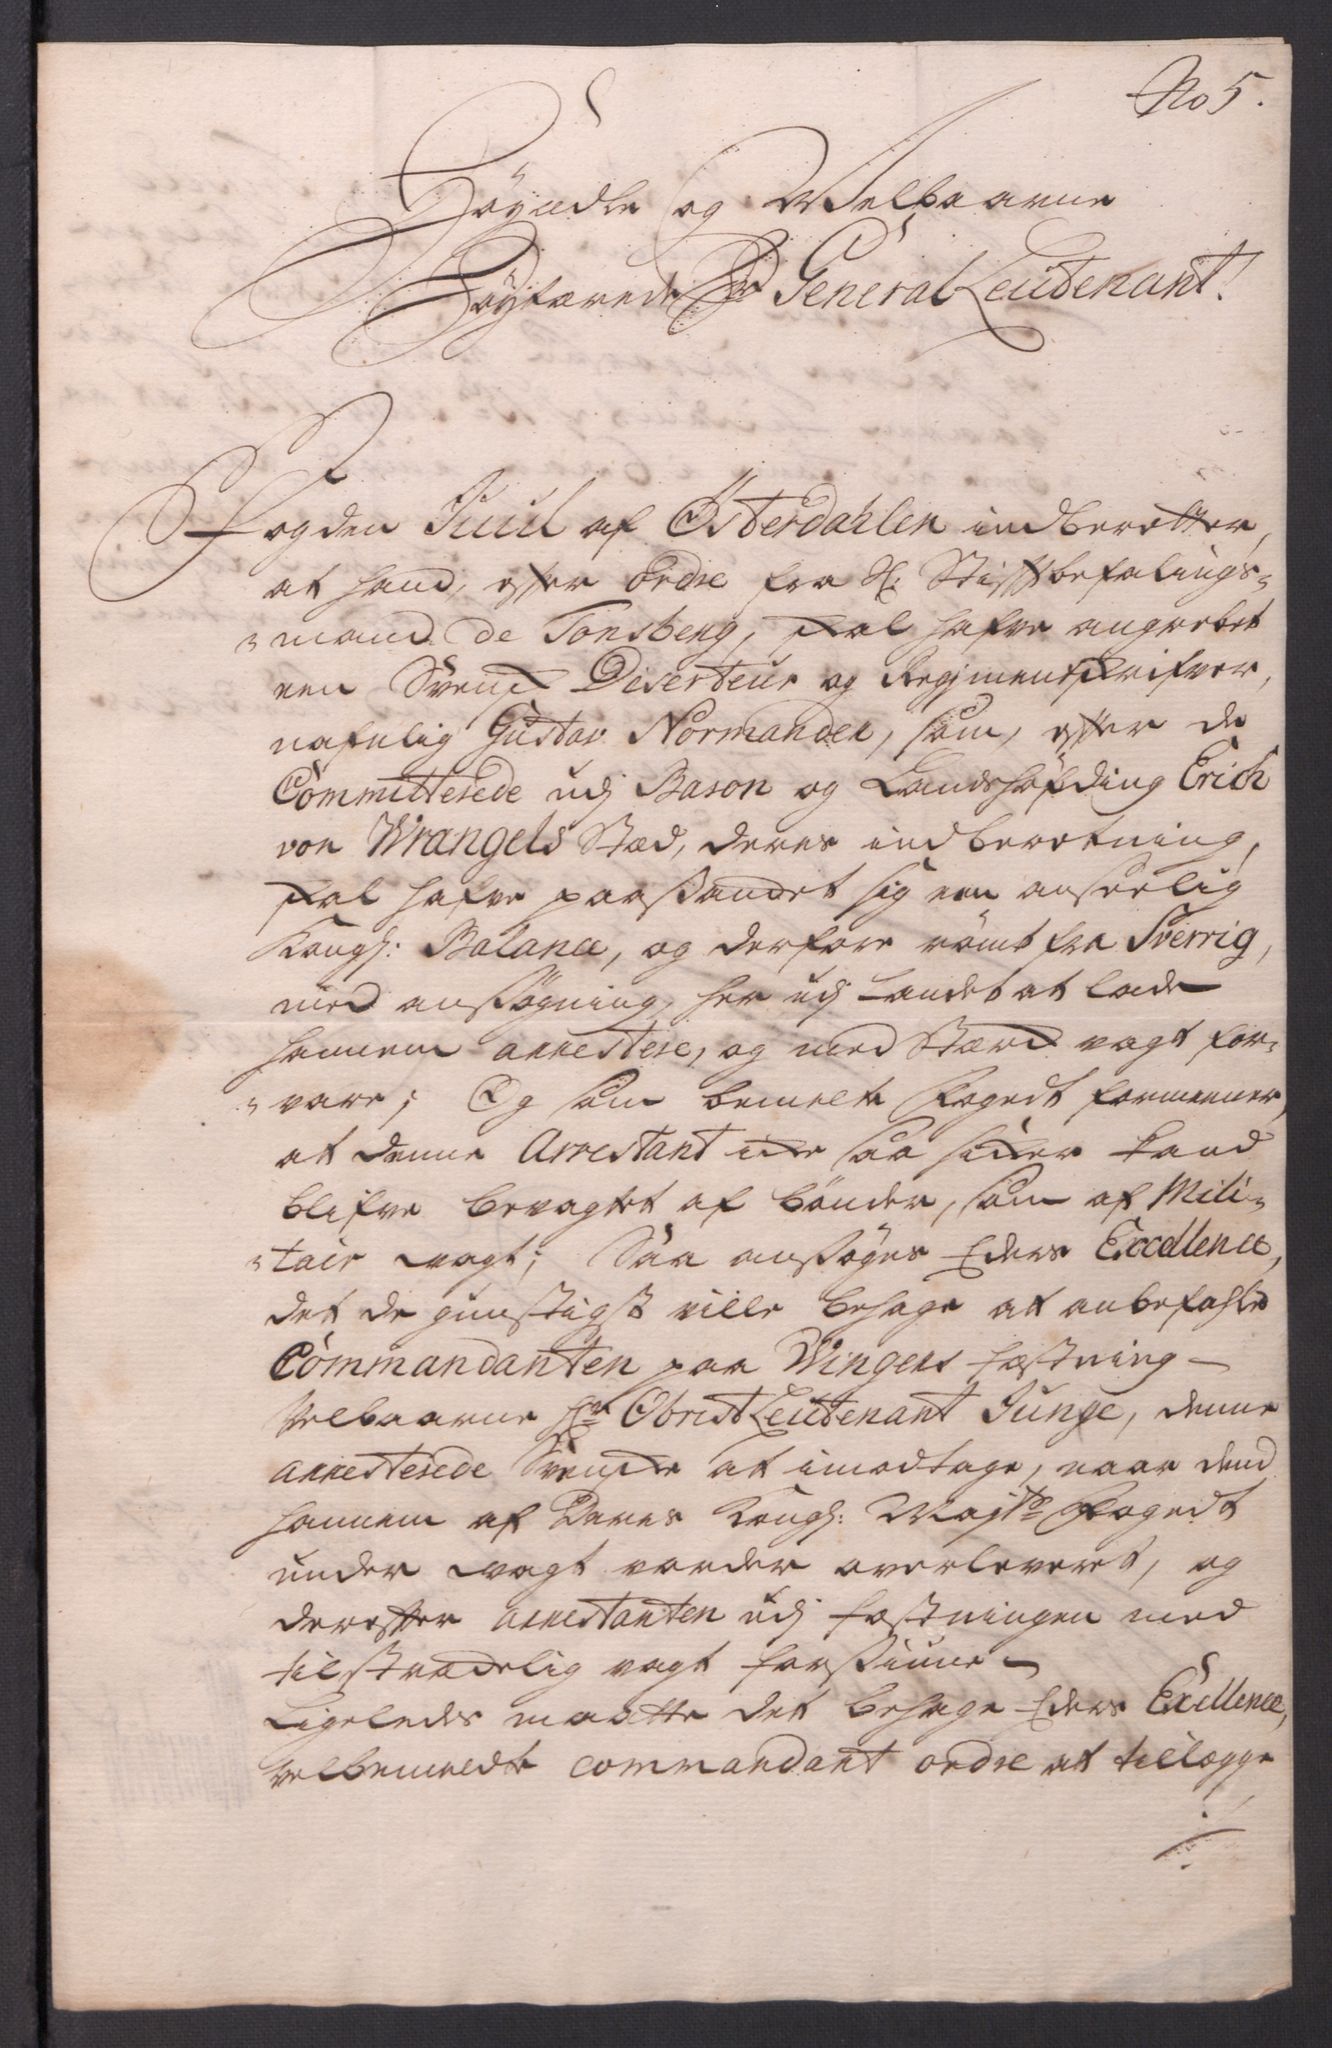 No 5.
Höyædle og Welbaarne
Höystærede Hr General Leutenant!
Fogden Juul af Østerdahlen indberetter,
at hand, efter Ordre fra H: Stiftbefalings-
-mand de Tonsberg, skal hafve angrebet
een Svensk Deserteur og Regimentskrifver,
nafnlig Gustav Normandea, som, efter de
Committerede udj Baron og Landshöfding Erich
von Wrangels Stæd, deres indberetning,
skal hafve paasamlet sig een anseelig
Kongl: Balance, og derfore römt fra Sverrig,
med ansögning, her udj Landet at lade
hannem arrestere, og med Stærk vagt for-
-vare; Og som bemelte Fogedt formeener,
at denne Arrestant icke saa sicker kand
blifve bevagtet af bönder, som af Mili-
-tair vagt; Saa ansöges Eders Excellence,
det de gunstigst ville behage at anbefahle
Commandanten paa Wingers Fæstning
Velbaarne Hr Obrist Leutenant Junge, denne
arresterede Svenske at imodtage, naar dend
hannem af Deres Kongl: Mayts Fogedt
under vagt vorder overleveret, og
derefter arrestanten udj Fæstningen med
tilstrækelig vagt forsiune
Ligeledes maatte det behage Eders Excellence,
velbemeldte commandant ordre at tillægge